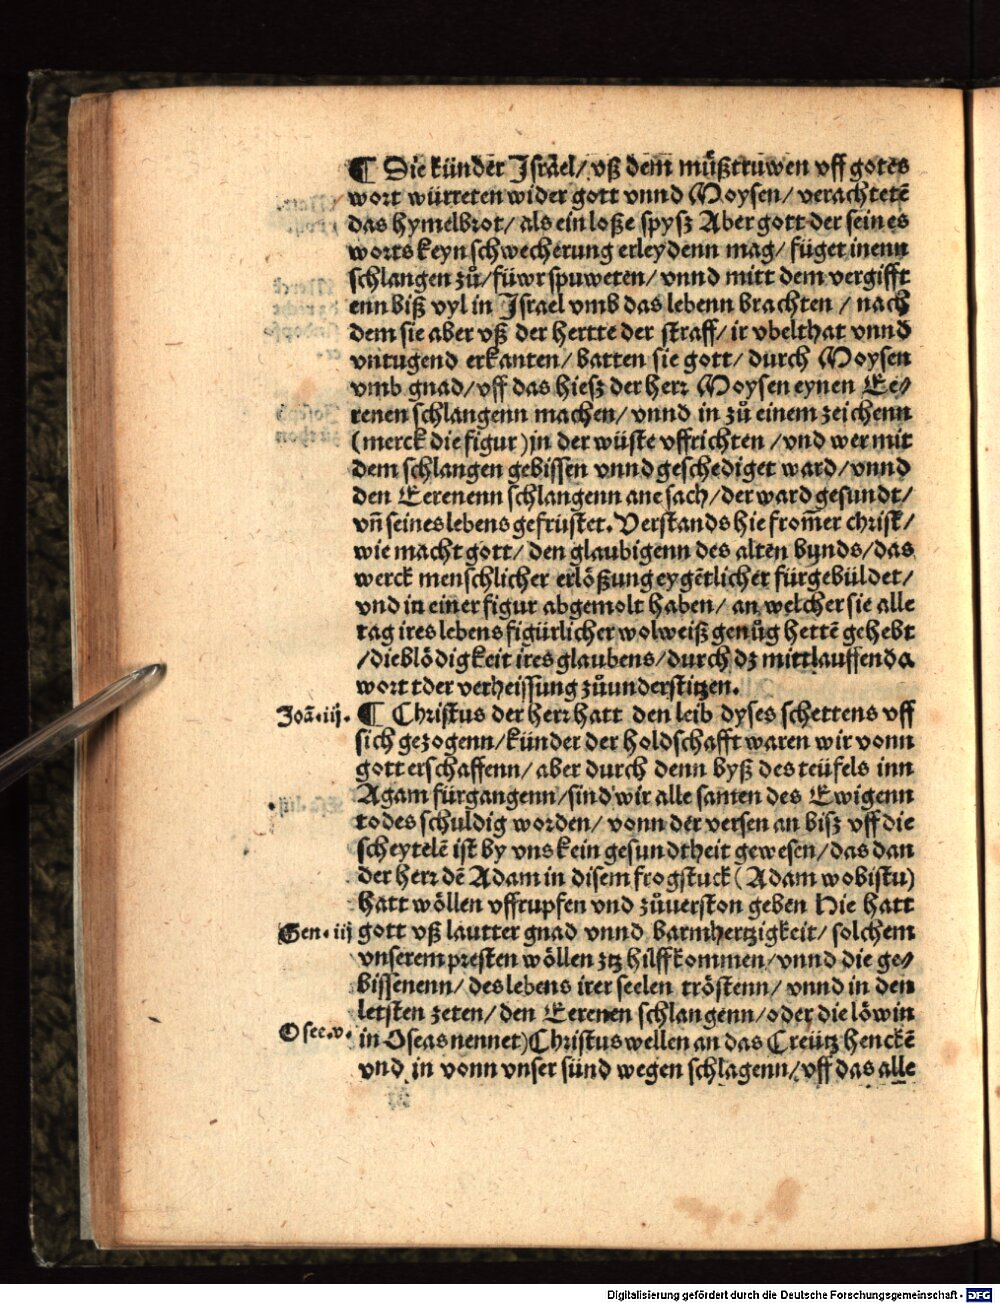 ¶ Die künder Israel/ vß dem müßtruwen vff gotes
wort wütteten wider gott vnnd Moysen/ verachtetē
das hymelbrot/ als ein loße spysz Aber gott der seines
worts keyn schwecherung erleydenn mag/ füget inenn
schlangen zů/ füwr spuweten/ vnnd mitt dem vergifft
enn biß vyl in Israel vmb das lebenn brachten / nach
dem sie aber vß der hertte der straff/ ir vbelthat vnnd
vntugend erkanten/ batten sie gott/ durch Moysen
vmb gnad/ vff das hiesz der herr Moysen eynen Ee/
renen schlangenn machen/ vnnd in zů einem zeichenn
(merck die figur) in der wüste vffrichten / vnd wer mit
dem schlangen gebissen vnnd geschediget ward/ vnnd
den Eerenenn schlangenn ane sach/ der ward gesundt/
vn̄ seines lebens gefrüstet. Verstands hie from̄er christ/
wie macht gott/ den glaubigenn des alten bunds/ das
werck menschlicher erlößung eygētlicher fürgebüldet/
vnd in einer figur abgemolt haben/ an welcher sie alle
tag ires lebens figürlicher wolweiß genůg hettē gehebt
/ die blödigkeit ires glaubens/ durch dz mittlauffenda
wort tder verheissung zůunderstitzen.
Joā. iij. ¶ Christus der herr hatt den leib dyses schettens vff
sich gezogenn/ künder der holdschafft waren wir vonn
gott erschaffenn/ aber durch denn byß des teüfels inn
Agam fürgangenn/ sind wir alle samen des Ewigenn
todes schuldig worden/ vonn der versen an bisz vff die
scheytelē ist by vns kein gesundtheit gewesen/ das dan
der herr dē Adam in disem frogstuck (Adam wo bistu)
hatt wöllen vffrupfen vnd zůuerston geben Hie hatt
Gen. iij gott vß lautter gnad vnnd barmhertzigkeit/ solchem
vnserem presten wöllen ztz hilff kommen/ vnnd die ge/
bissenenn/ des lebens irer seelen tröstenn/ vnnd in den
letsten zeten/ den Eerenen schlangenn/ oder die löwin
Osee. v. in Oseas nennet) Christus wellen an das Creütz henckē
vnd in vonn vnser sünd wegen schlagenn/ vff das alle
Digitalisierung gefördert durch die Deutsche Forschungsgemeinschaft - DFG